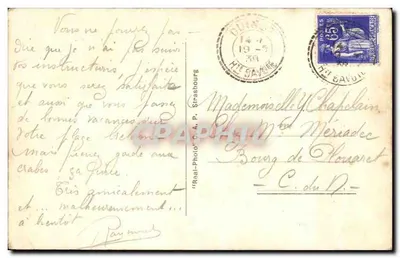 Vous ne pourrez pas
dire que je n'ai pas suivi
vos instructions, j'espère
que vous serez satisfaite
et aussi que vous passez
de bonnes vacances sur
votre plage
mais prenez garde aux
crabes, ça pince
Très amicalement
et ... malheureusement ...
à bientôt
Raymond
"Real-Photo" C. A. P. Strasbourg
14-
19-
38
Hte SAVOIE
65
Hte SAVOIE
Mademoiselle Y Chapelain
Mériadec
Bourg de Plouaret
C. du N.